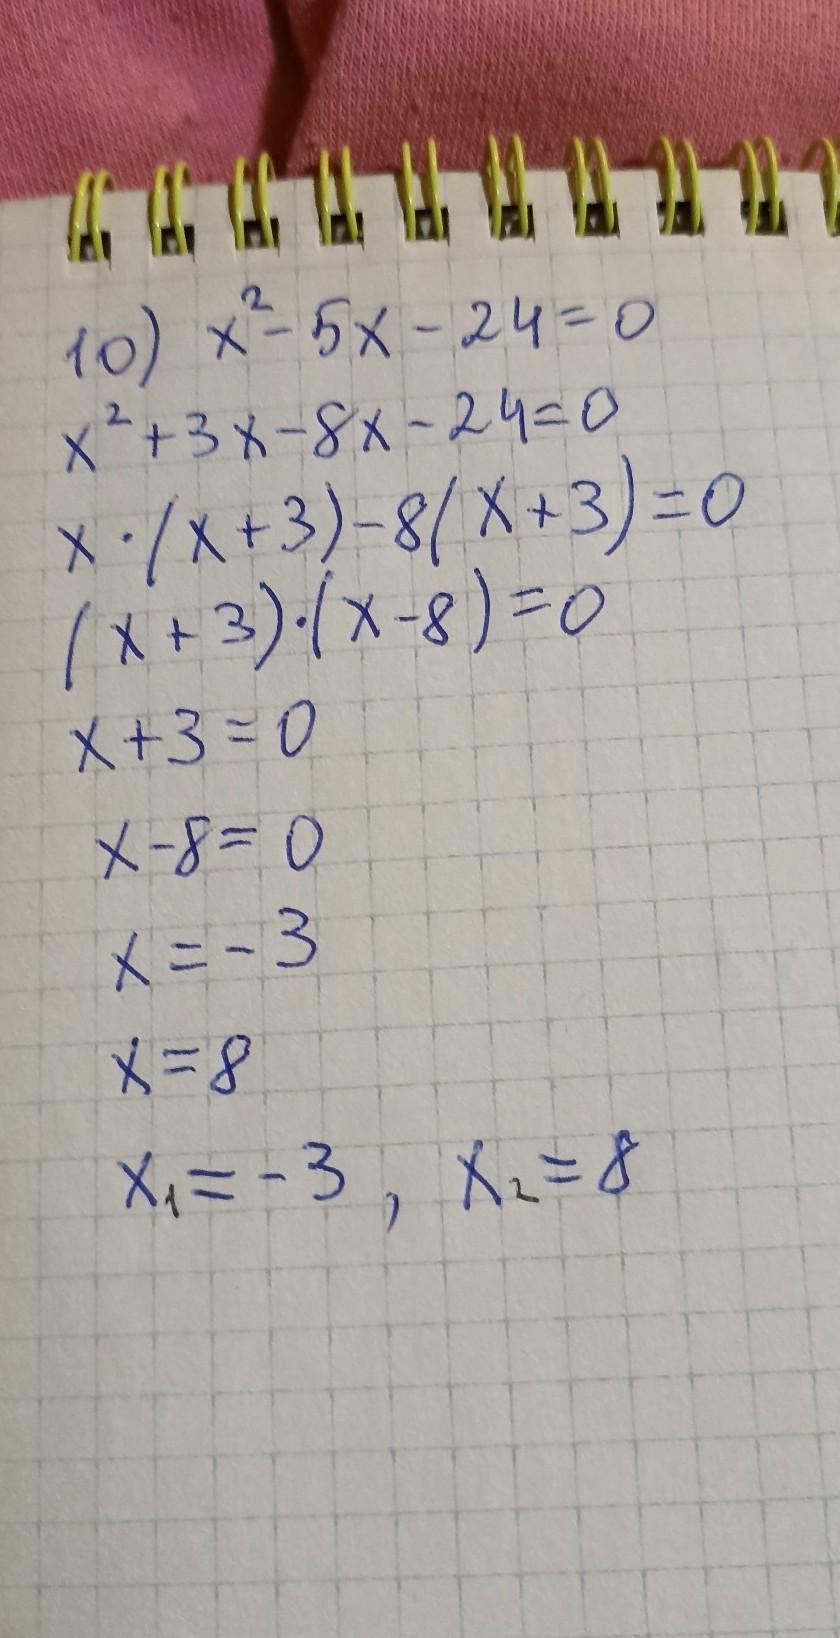 10) x² - 5x - 24 = 0
x² + 3x - 8x - 24 = 0
x · (x + 3) - 8(x + 3) = 0
(x + 3) · (x - 8) = 0
x + 3 = 0
x - 8 = 0
x = - 3
x = 8
x₁ = - 3 , x₂ = 8